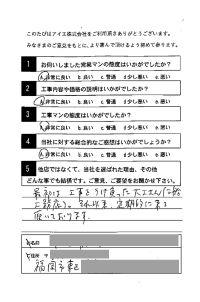 このたびはアイエス株式会社をご利用頂きありがとうございます。
みなさまのご意見をもとに、より選んで頂けるよう努めて参ります。
1 お伺いしました営業マンの態度はいかがでしたか？
a 非常に良い b 良い c 普通 d 少し悪い e 悪い
2 工事内容や価格の説明はいかがでしたか？
a 非常に良い b 良い c 普通 d 少し悪い e 悪い
3 工事マンの態度はいかがでしたか？
a 非常に良い b 良い c 普通 d 少し悪い e 悪い
4 当社に対する総合的なご感想はいかがでしょうか？
a 非常に良い b 良い c 普通 d 少し悪い e 悪い
5 他店ではなくて、当社を選ばれた理由、その他
どんな事でも結構です。ご意見、ご要望をお聞かせ下さい。
最初は工事をうけ負った大工さんに紹
定期的に来
頂いております。
福岡市東区